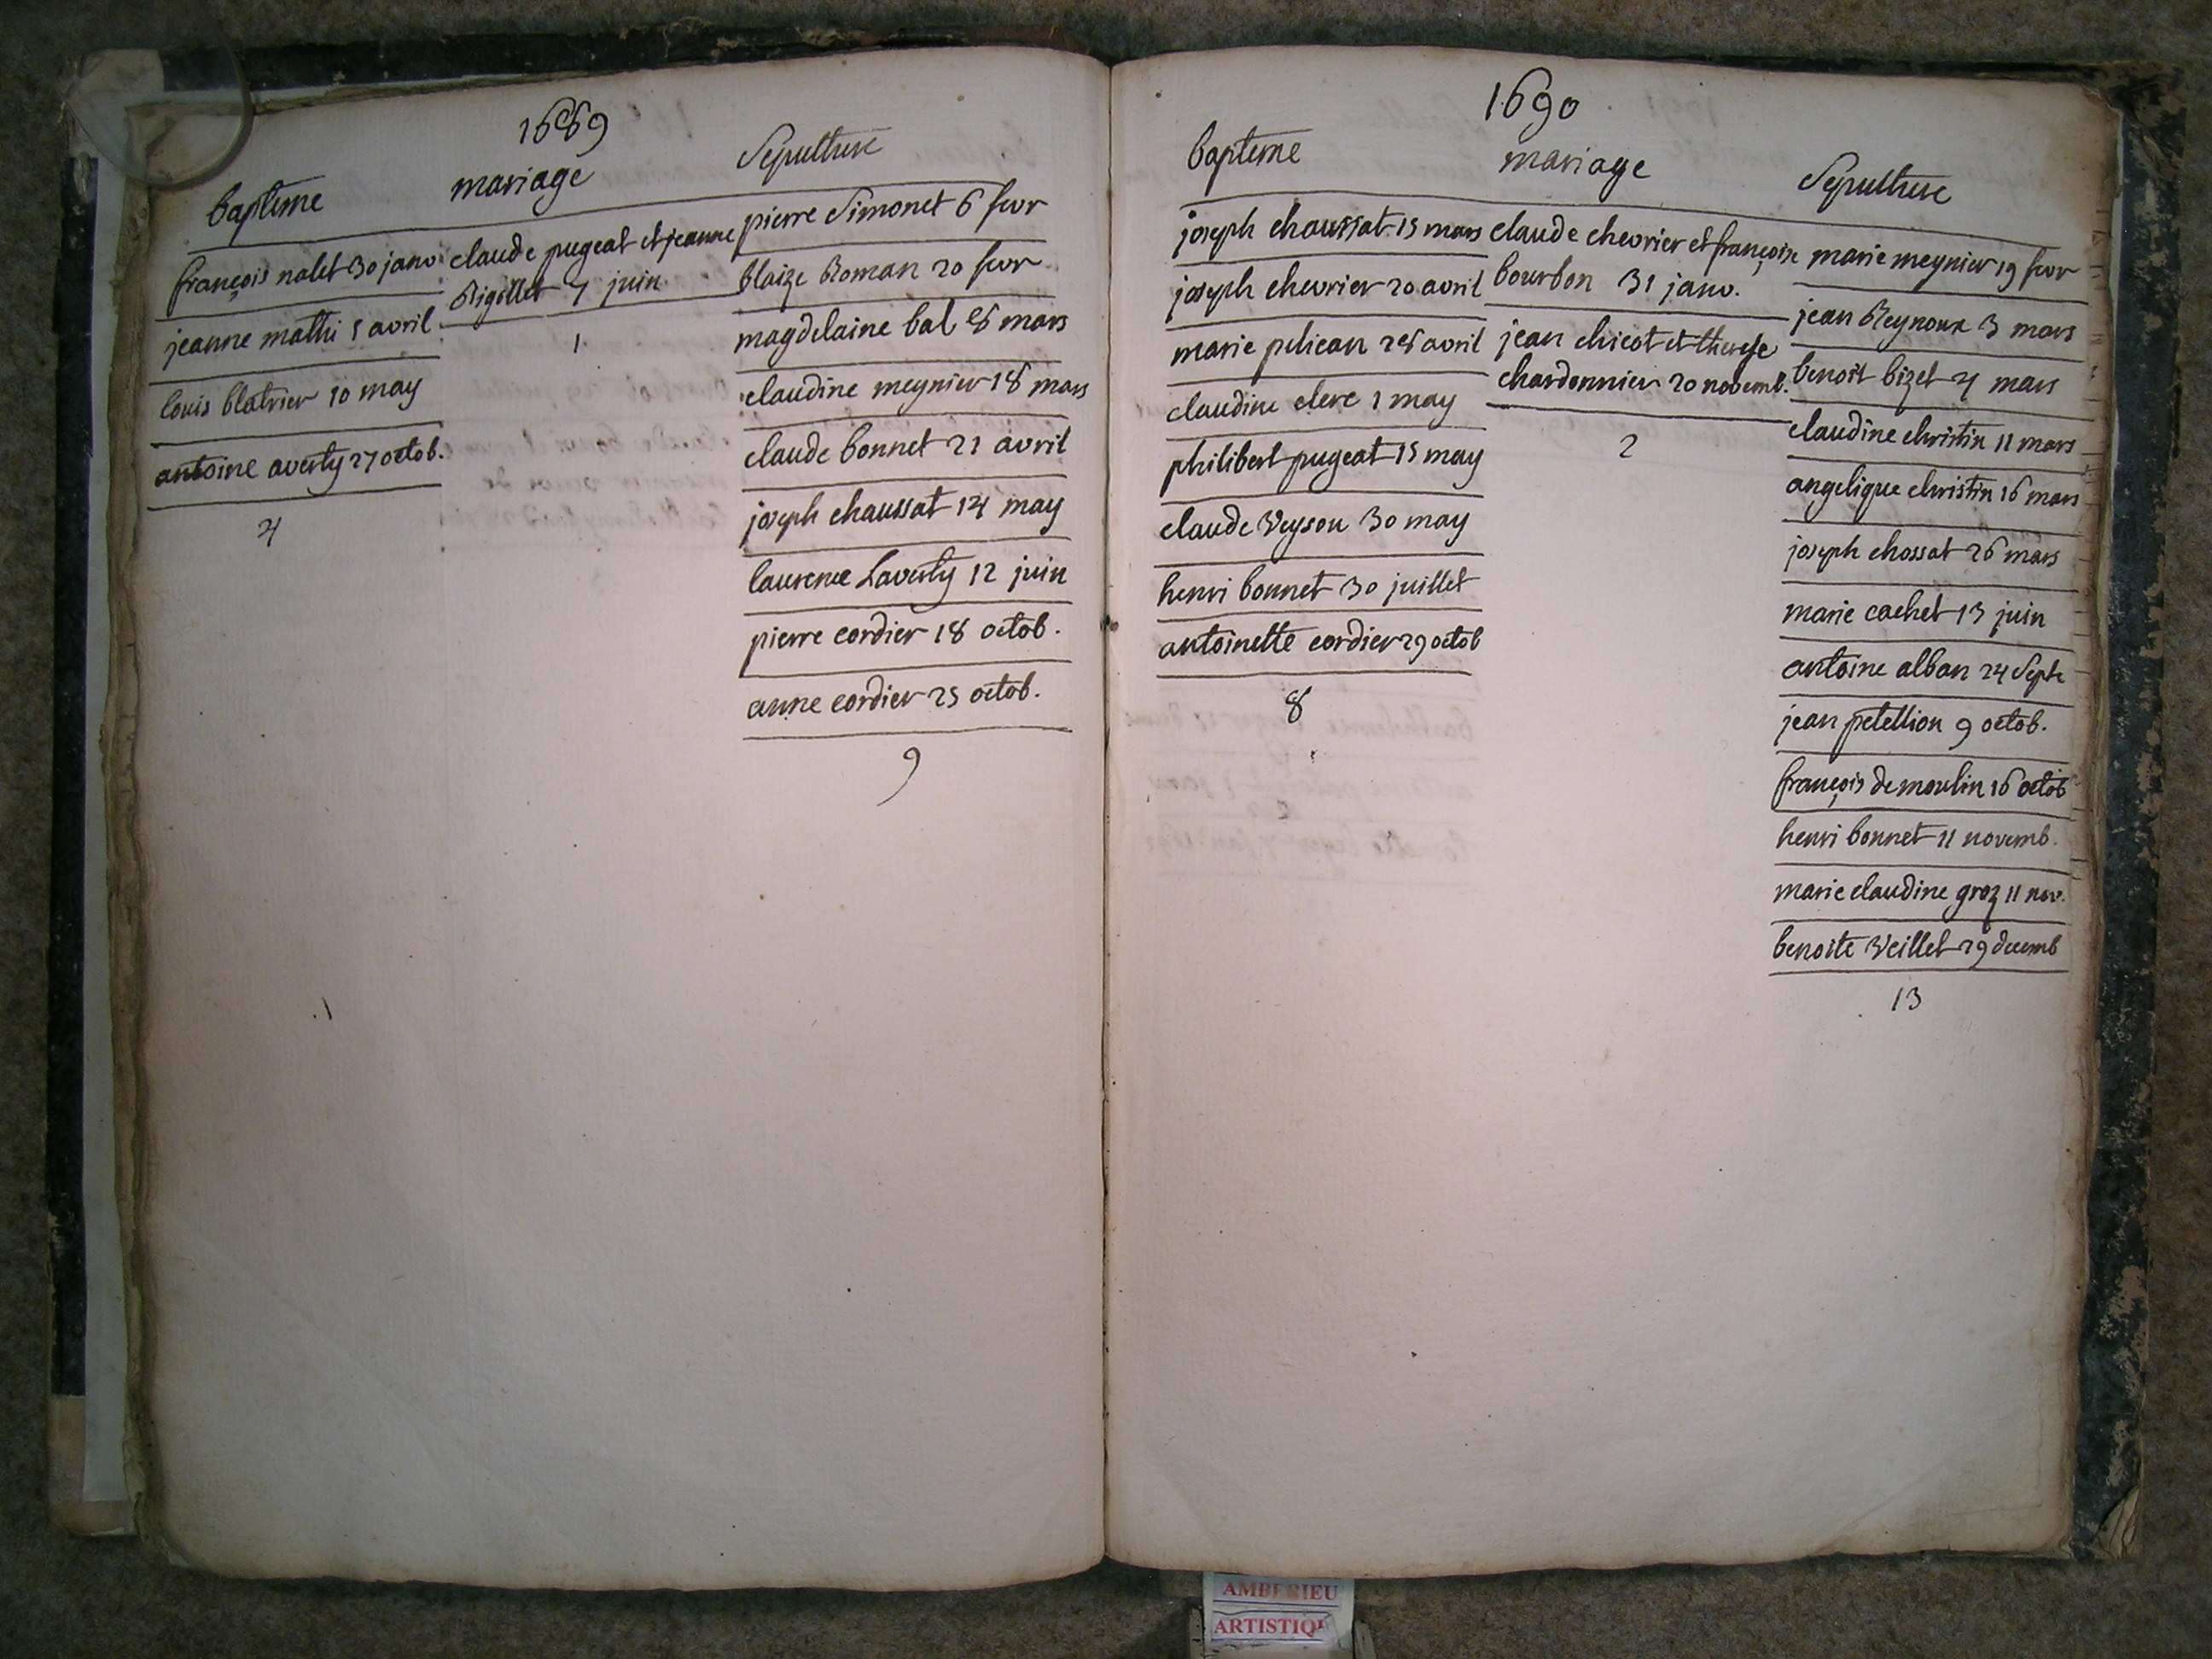 1689
bapteme
françois nalet 30 janv.
jeanne mathi 5 avril
louis blatrier 10 may
antoine averly 27 octob.
4
mariage
claude pugeat et jeanne
Rigollet 7 juin
1
Sepulture
pierre Simonet 6 fevr
blaize Roman 20 fevr
magdelaine bal 8 mars
claudine meynier 18 mars
claude bonnet 21 avril
joseph chaussat 14 may
laurence Laverly 12 juin
pierre cordier 18 octob.
anne cordier 25 octob.
9
1690
bapteme
joseph chaussat 15 mars
joseph chevrier 20 avril
marie pelican 28 avril
claudine clerc 1 may
philibert pugeat 15 may
claude Veyson 30 may
henri bonnet 30 juillet
antoinette cordier 29 octob
8
mariage
claude chevrier et françoise
bourbon 31 janv.
jean chicot et therese
chardonnier 20 novemb.
2
Sepulture
marie meynier 19 fevr
jean Reynoux 3 mars
benoit bizet 4 mars
claudine christin 11 mars
angelique christin 16 mars
joseph chossat 26 mars
marie cachet 13 juin
antoine alban 24 Septe
jean petellion 9 octob.
françois demoulin 16 octob
henri bonnet 11 novemb.
marie claudine groz 11 nov.
benoite Veillet 29 decemb
13
AMBERIEU
ARTISTIQ